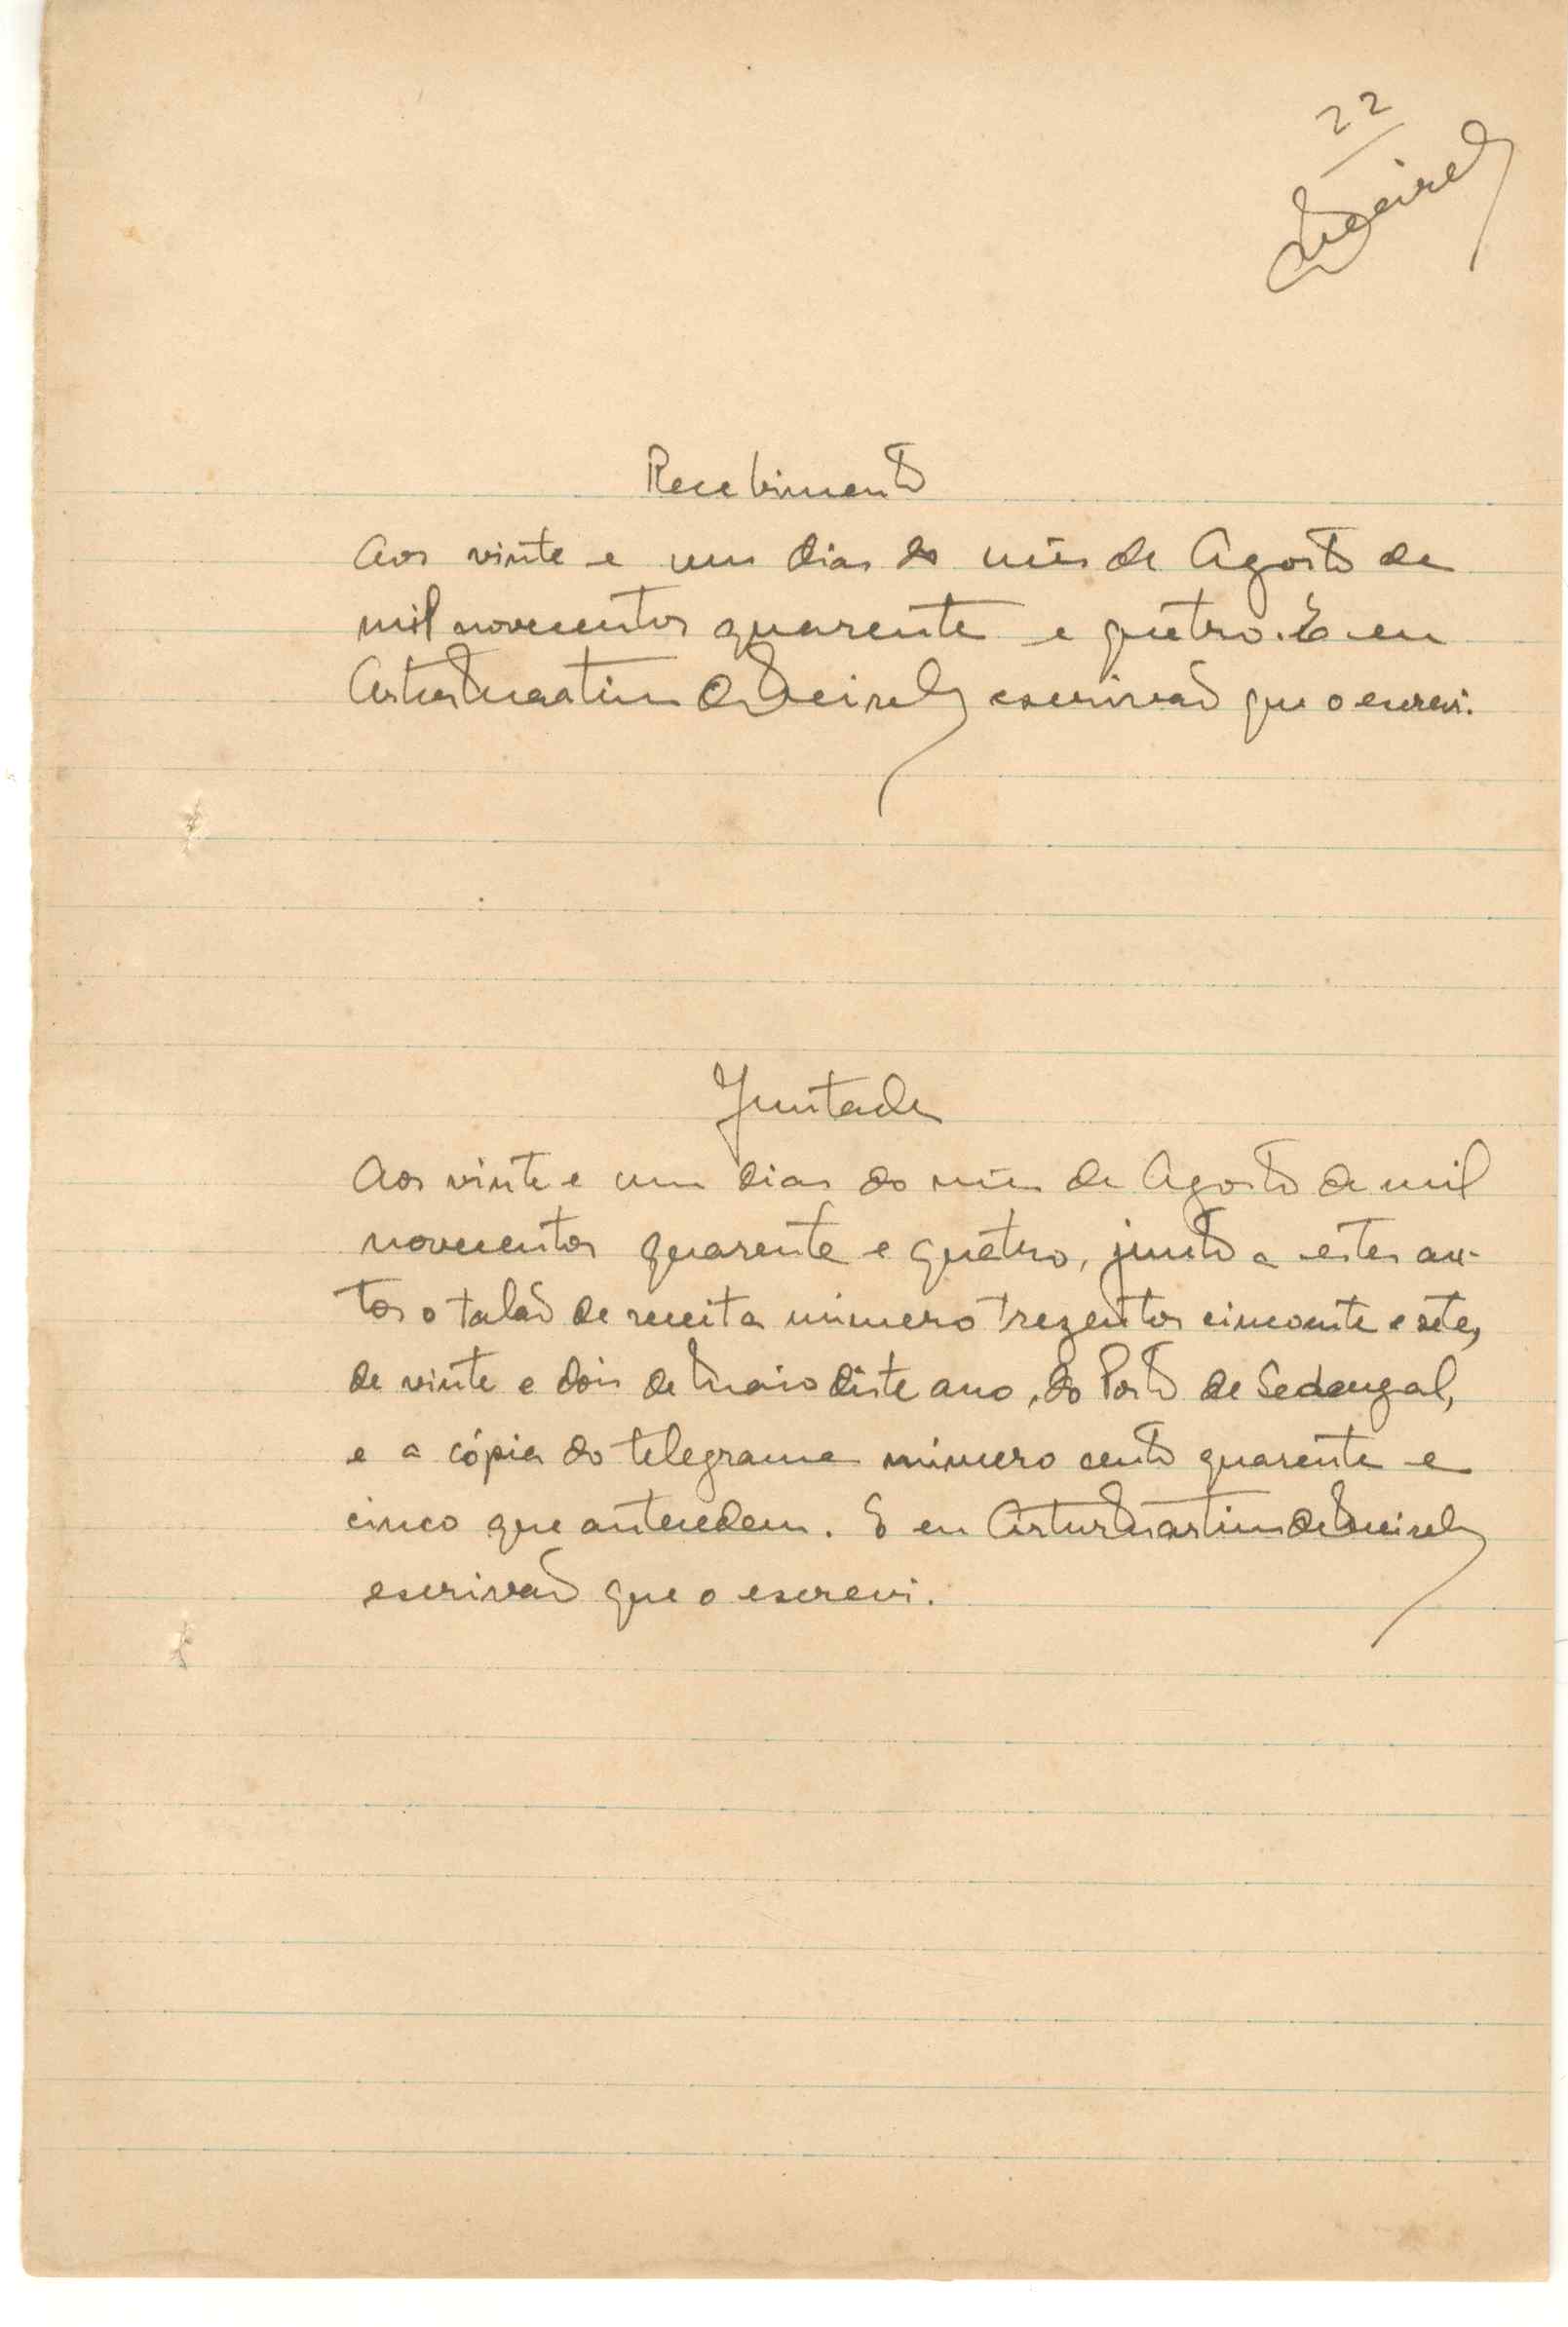 22
Meirel
Recebimento
Aos vinte e um dias do mês de Agosto de
mil novecentos quarenta e quatro. E eu
Artur Martins de Meirel escrivão que o escrevi.
Juntada
Aos vinte e um dias do mês de Agosto de mil
novecentos quarenta e quatro, junto a estes au-
tos o talão de receita número trezentos cincoenta e sete,
de vinte e dois de Maio dêste ano, do Posto de Sedengal,
e a cópia do telegrama número cento quarenta e
cinco que antecedem. E eu Artur Martins de Meirel
escrivão que o escrevi.